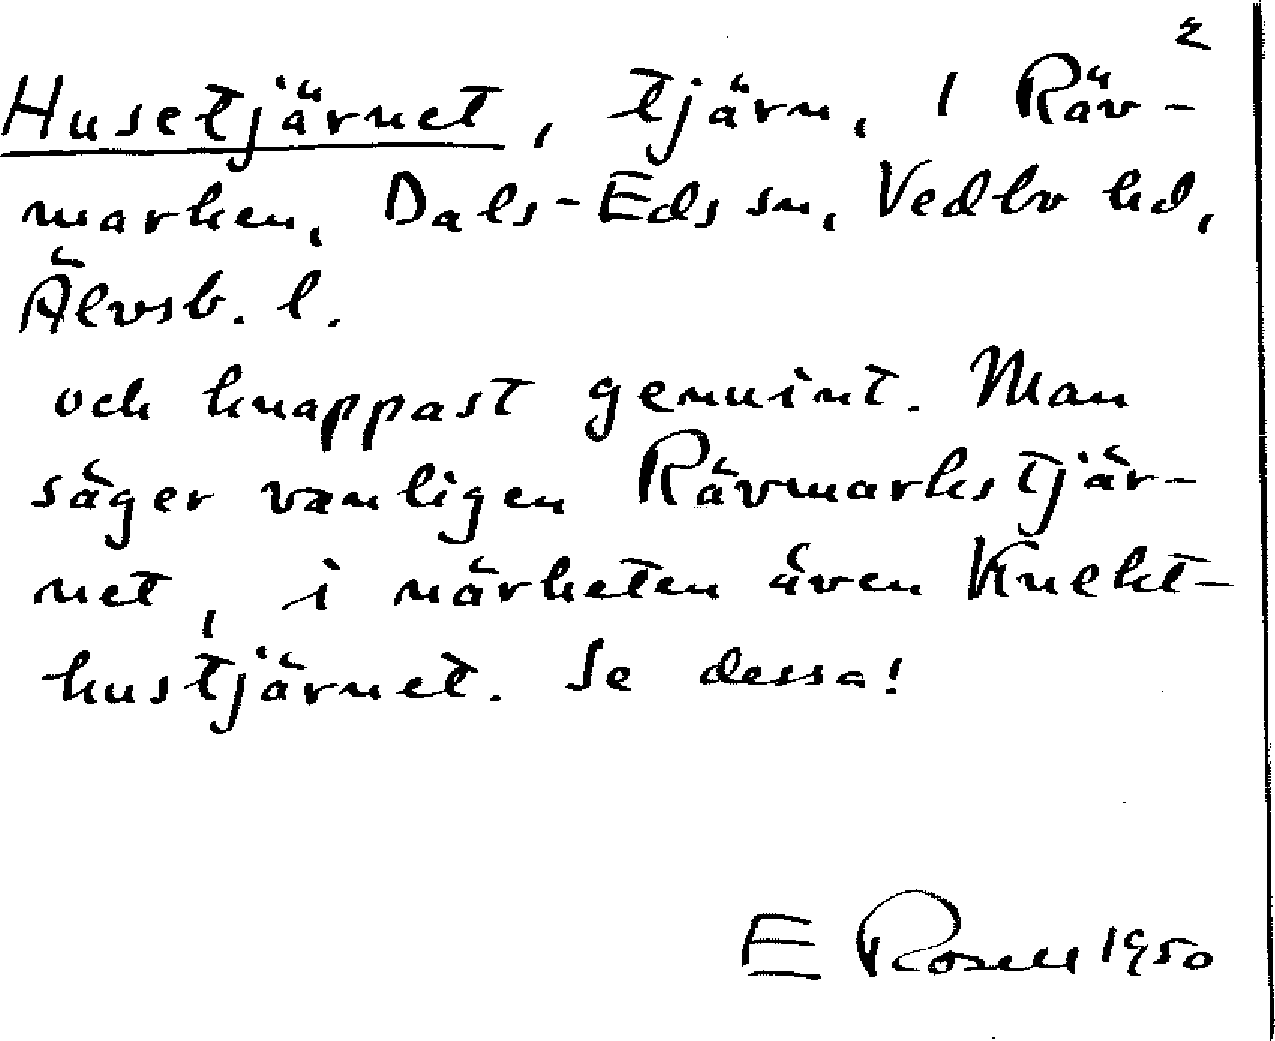 2
Husetjärnet, tjärn, 1 Räv-
marken, Dals-Eds sn, Vedbo hd,
Älvsb. l.
och knappast genuint. Man
säger vanligen Rävmarkstjär-
net, i närheten även Knekt-
hustjärnet. Se dessa!
E Rosell 1950